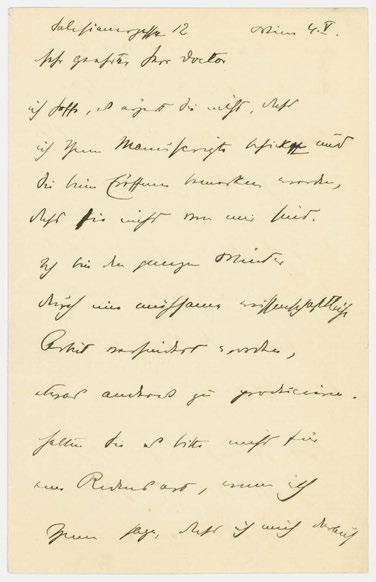 Salesianergasse 12 Wien 4. V.
sehr geehrter Herr Doctor
ich hoffe, es ärgert Sie nicht, daß
ich Ihnen Manuscripte schicke und
Sie beim Eröffnen bemerken werden,
daß sie nicht von mir sind.
Ich bin den ganzen Winter
durch eine mühsame wissenschaftliche
Arbeit verhindert worden,
etwas anderes zu producieren.
Halten Sie es bitte nicht für
eine Redensart, wenn ich
Ihnen sage, daß ich mich darauf